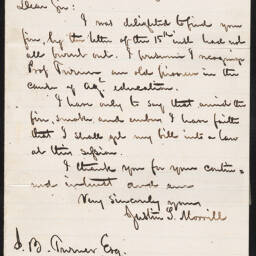 Dear Sir:
I was delighted to find your
fire, by the letter of the 15th inst. had not
all burnt out. I presume I recognize
Prof Turner an old pioneer in the
cause of Agl education.
I have only to say that amid the
fire, smoke and embers I have faith
that I shall get my bill into a law
at this session.
I thank you for your continued
interest and am
Very sincerely yours
Justin S. Morrill
J. B. Turner Esq.